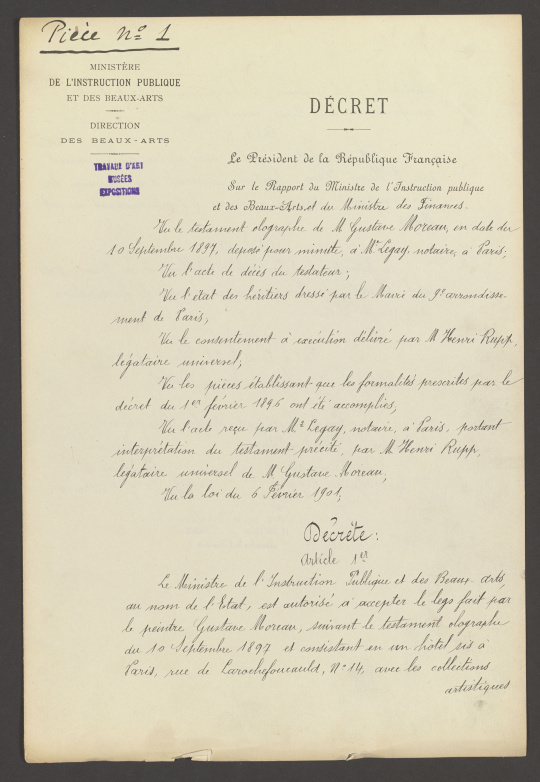 Pièce No 1
MINISTÈRE
DE L'INSTRUCTION PUBLIQUE
ET DES BEAUX-ARTS
DIRECTION
DES BEAUX-ARTS
TRAVAUX D'ART
MUSÉES
EXPOSITIONS
DÉCRET
Le Président de la République Française
Sur le Rapport du Ministre de l'Instruction publique
et des Beaux-Arts, et du Ministre des Finances.
Vu le testament olographe de M Gustave Moreau, en date du
10 Septembre 1897, déposé pour minute, à Me Legay, notaire, à Paris;
Vu l'acte de décès du testateur;
Vu l'état des héritiers dressé par le Maire du 9e arrondisse-
ment de Paris;
Vu le consentement à exécution délivré par M Henri Rupp,
légataire universel;
Vu les pièces établissant que les formalités prescrites par le
décret du 1er février 1896 ont été accomplies,
Vu l'acte reçu par Me Legay, notaire, à Paris, portant
interprétation du testament précité, par M Henri Rupp,
légataire universel de M Gustave Moreau,
Vu la loi du 6 Février 1901;
Décrète:
Article 1er
Le Ministre de l'Instruction Publique et des Beaux-arts,
au nom de l'Etat, est autorisé à accepter le legs fait par
le peintre Gustave Moreau, suivant le testament olographe
du 10 Septembre 1897 et consistant en un hôtel sis à
Paris, rue de Larochefoucauld, No 14, avec les collections
artistiques